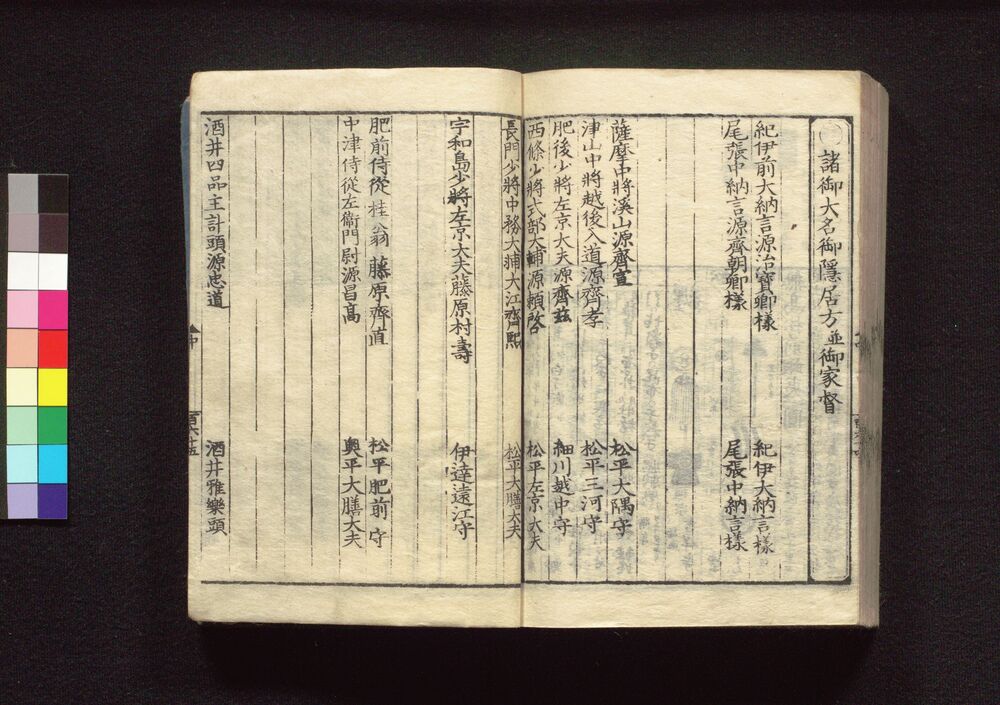 諸御大名御隱居方並御家督
紀伊前大納言源治寶卿様 紀伊大納言様
尾張中納言源齊朝卿様 尾張中納言様
薩摩中將溪山源齊宣 松平大隅守
津山中將越後入道源齊孝 松平三河守
肥後少將左京大夫源齊茲 細川越中守
西條少將式部大輔源頼啓 松平左京大夫
長門少將中務大輔大江齊熙 松平大膳大夫
宇和島少將左京大夫藤原村壽 伊達遠江守
肥前侍從桂翁藤原齊直 松平肥前守
中津侍從左衞門尉源昌高 奥平大膳大夫
酒井四品主計頭源忠道 酒井雅樂頭
中
百六十五